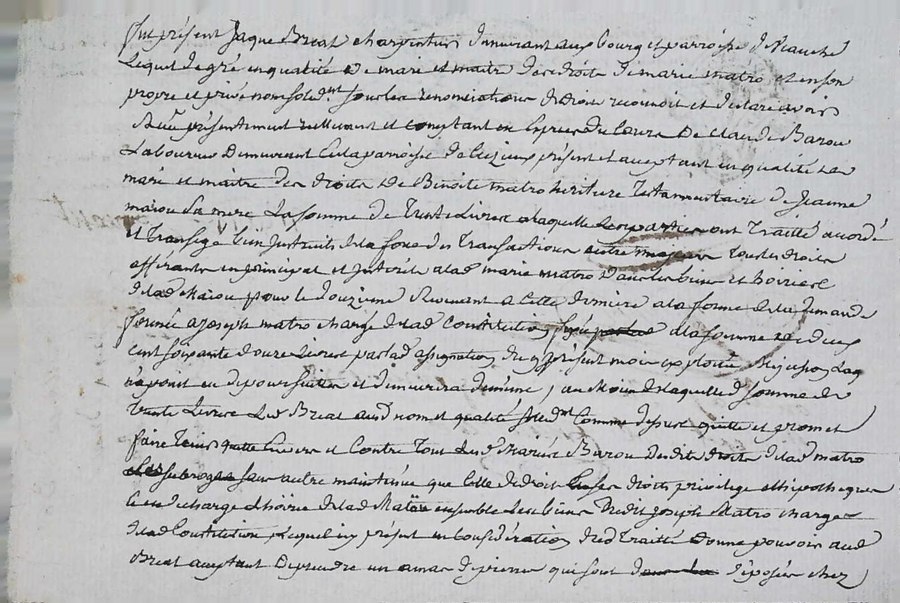 fut présent Jaque Breat charpentier demeurant au bourg et parroisse de
Lequel de gré en qualité de mari et maitre des droits de marie matro et en son
propre et privé nom sol.d.nt sous les renonciations de droit reconnoit et declare avoir
Reçu présentement réellement et comptant en espèces du cours de Claude Barou
Laboureur demeurant en la parroisse de présent et acceptant en qualité de
mari et maitre des droits de Benoite matro héritière testamentaire de Jeanne
maiou sa mere La somme de trente Livres a laquelle les parties ont traitté accordé
et transigé bien instruits de la force des transactions entre majeurs tous les droits
afférants en principal et intérêts a lad marie matro dans les biens et hoiries
de lad Maiou pour le douzieme Revenant a cette derniere a la forme de la demande
formée a Joseph matro chargé de lad Constitution a la somme de deux
cent soixante douze Livres par lad assignation du présent mois exploitée
demeurera au Moien de laquelle d somme de
trente Livres Led Breat aud nom et qualité sol.d.nt Comme dessus quitte et promet
faire tenir quitte Envers et Contre tous Led Mariés Barou desdits droits de lad matro
sans autre maintenue que celle de droit ses droits privilege et hipotheques
chargé L'hoirie de lad Maiou ensemble Les biens dudit Joseph Matro chargé
de lad Constitution présent en Considération dud traitté donne pouvoir aud
Breat acceptant de prendre un amas de pierres qui sont déposées chez